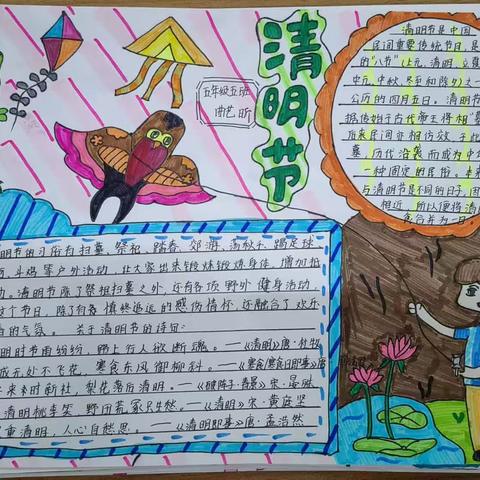 清明节
五年级五班
曲艺昕
清明节是中国
民间重要传统节日，是
的"八节"（上元、清明、立夏
中元、中秋、冬至和除夕）之一
公历的四月五日。清明节
据传始于古代帝王将相"墓
后来民间亦相仿效，于此
墓，历代沿袭而成为中华
一种固定的民俗。本来
与清明节是不同的日子，
相近，所以便将清
食合并为一日
明节的习俗有扫墓、祭祖、踏春、郊游、荡秋千、蹴足球
斗鸡等户外活动，让大家出来锻炼锻炼身体，增加抵
力。清明节除了祭祖扫墓之外，还有各项野外健身活动，
这个节日，除了有着慎终追远的感伤情怀，还融合了欢乐
春的气氛。 关于清明节的诗句：
明时节雨纷纷，路上行人欲断魂。——《清明》唐·杜牧
城无处不飞花，寒食东风御柳斜。——《寒食/寒食日即事》唐
子来时新社，梨花落后清明。——《破阵子·春景》宋·晏殊
清明桃李笑，野田荒冢只生愁。——《清明》宋·黄庭坚
重清明，人心自愁思。——《清明即事》唐·孟浩然